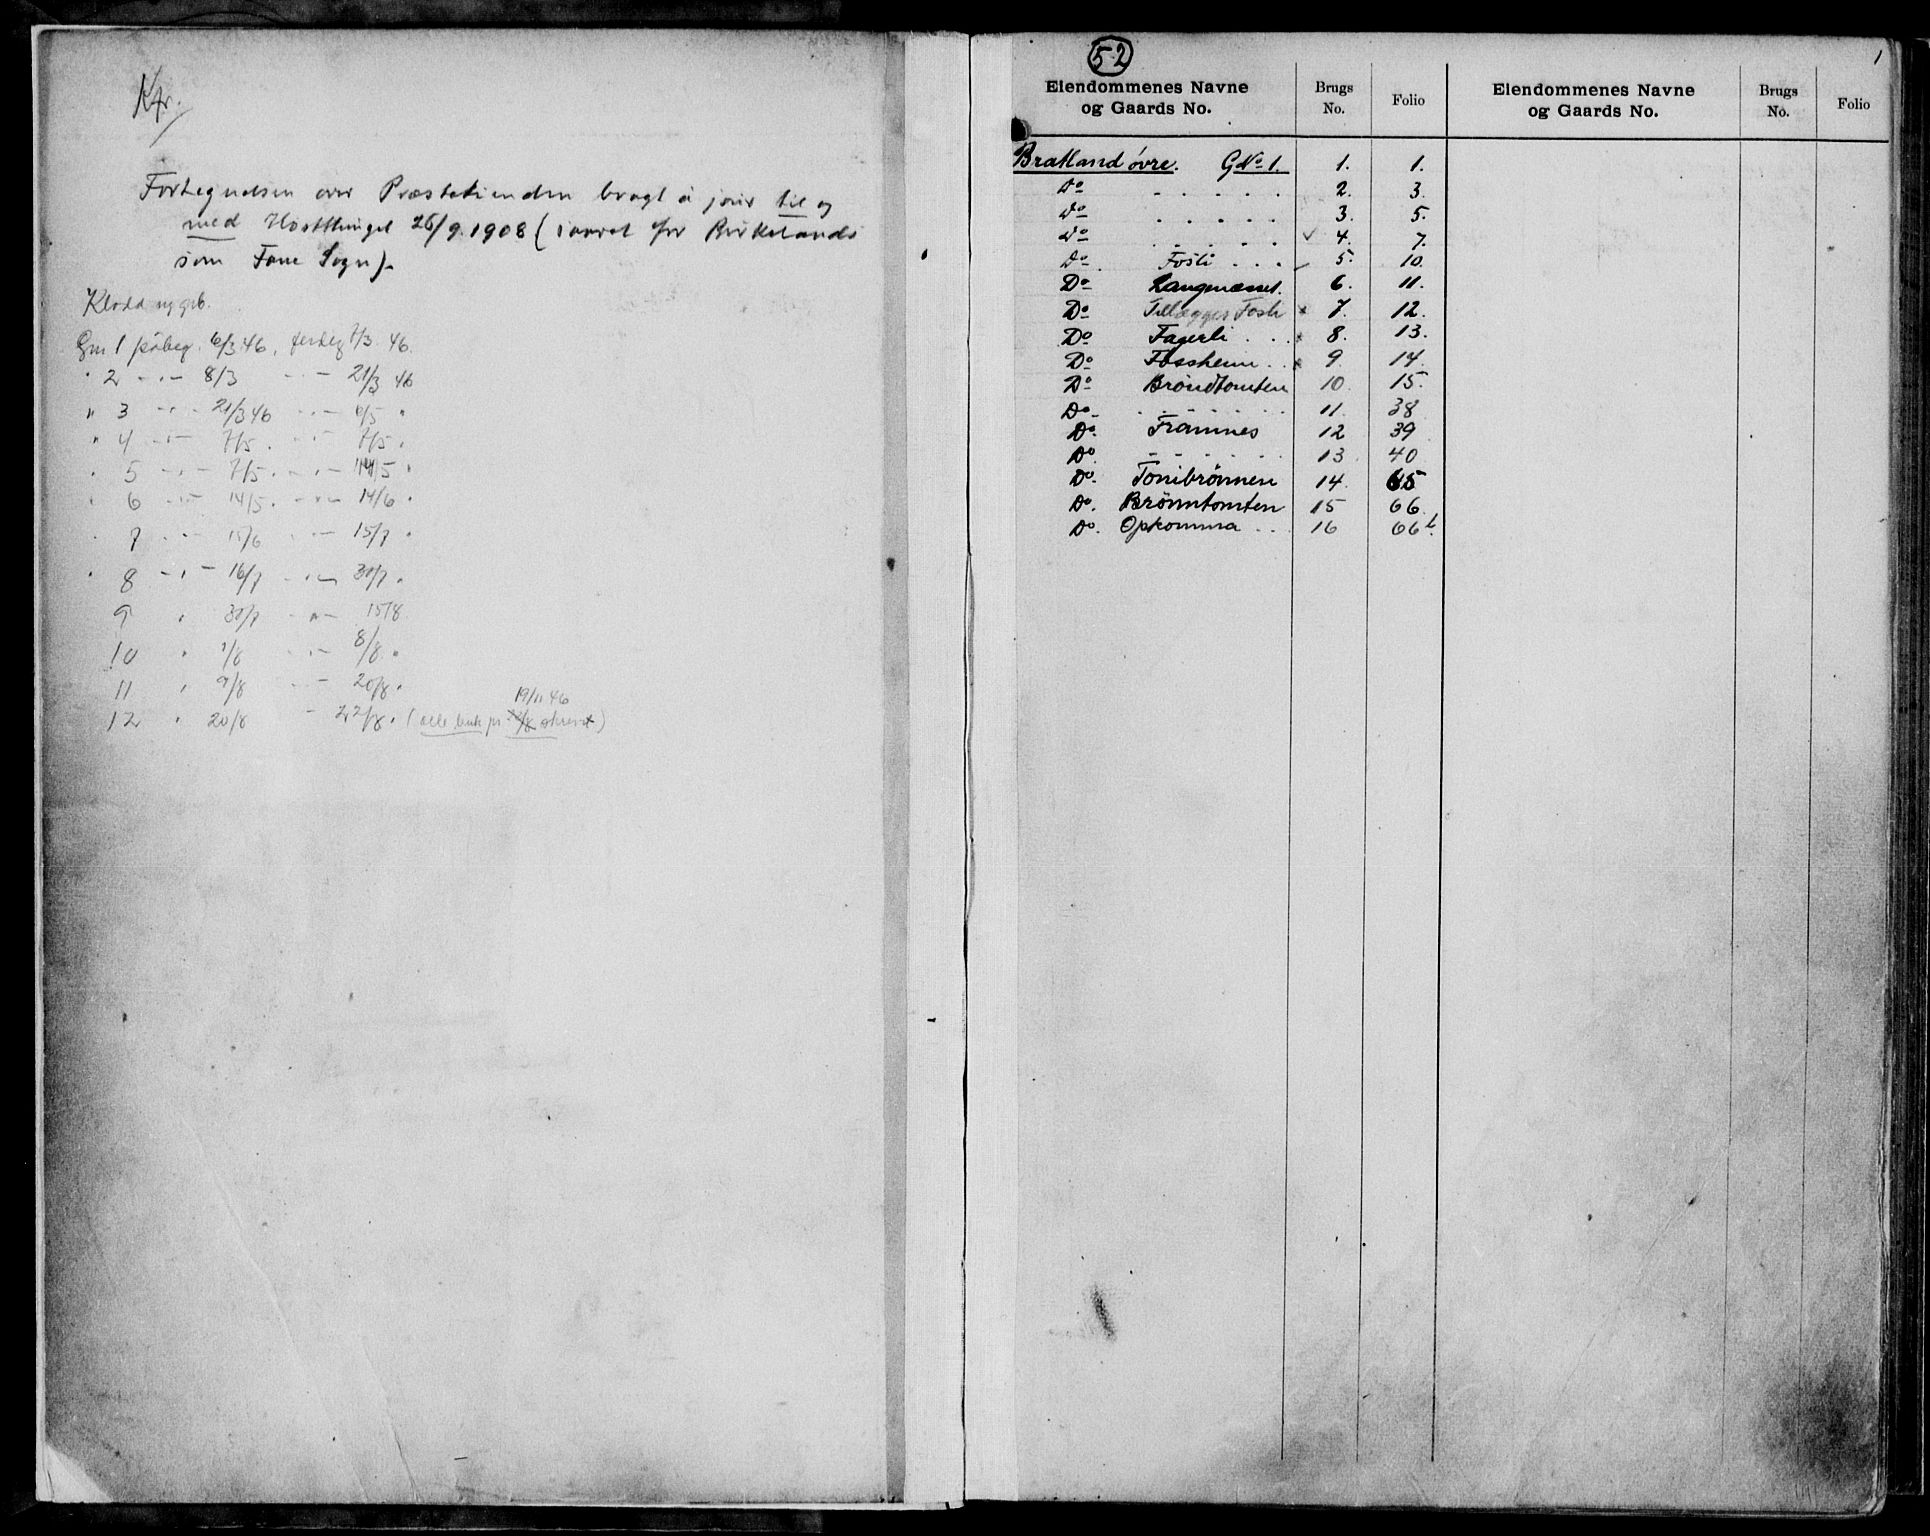 Kfr.
Fortegnelsen over Præstetienden bragt á jour til og
med Høstthinget 26/9.1908 (
som Fane Sogn).
Kladd nygrb.
Gnr 1 påbeg. 6/3.46, ferdig 7/3. 46.
" 2 -"- 8/3 -"- 21/3 46
" 3 -"- 21/3 46 -"- 6/5 "
" 4 -"- 7/5. -"- 7/5.
" 5 -"- 7/5. -"- 14/5 "
" 6 -"- 14/5. -"- 14/6 "
7 -"- 15/6 -"- 15/7 "
" 8 -"- 16/7 -"- 30/7.
9 " 30/7 -"- 15/8
10 " 1/8 -"- 8/8. "
11 " 9/8 -"- 20/8.
19/11 46
12 " 20/8 - 22/8. (alle bruk pr. skrevet)
52
1
Eiendommenes Navne og Gaards No. Brugs No. Folio Eiendommenes Navne og Gaards No. Brugs No. Folio
Bratland øvre. GNo 1. 1. 1.
Do . . . . . 2. 3.
Do . . . . . 3. 5.
Do . . . . . 4. 7.
Do Fosli . . . 5. 10.
Do Langenæsset. 6. 11.
Do Tillægges Fosli 7. 12.
Do Fagerli . . . 8. 13.
Do Fossheim . . 9. 14.
Do Brøndtomten 10. 15.
Do . . . . . . 11. 38
Do. Framnes 12 39
Do. . . . . . . 13. 40
Do. Tonibrønnen 14. 65
Do. Brønntomten 15 66.
Do. Opkomma . . . 16 66b.